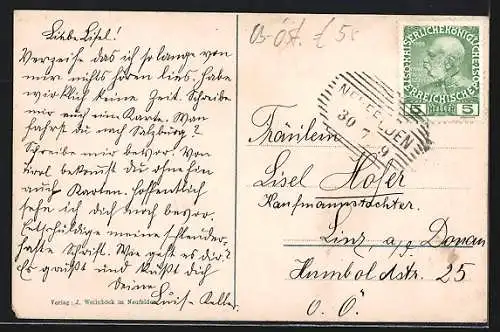 Liebe Lisel!
Verzeihe das ich so lange von
mir nichts hören lies. habe
wirklich keine Zeit. Schreibe
mir auf ein Karte. Wan
fahrst du nach Salzburg?
Schreibe mir bevor. Von
Tirol bekomst du ohnehin
auch Karten. Hoffentlich
sehn ich dich noch bevor.
Entschuldige meine schleuder-
hafte Schrift. Wie geht es dir?
Es grüßt und küßt dich
Deine
Luise Keller
Verlag: J. in Neufelden
5
KAISERLICHE KÖNIGLICHE
ÖSTERREICHISCHE
5 HELLER 5
NEUFELDEN
30 7 9
Fräulein
Lisel Hofer
Kaufmannstochter.
Linz a/d Donau
Humboldstr. 25
O. Ö.